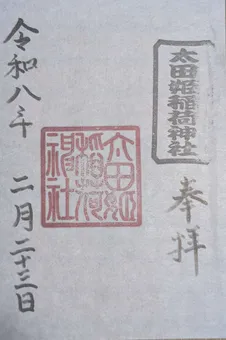 太田姫稲荷神社
奉拝
太田姫
稲荷
神社
令和八年
二月二十三日